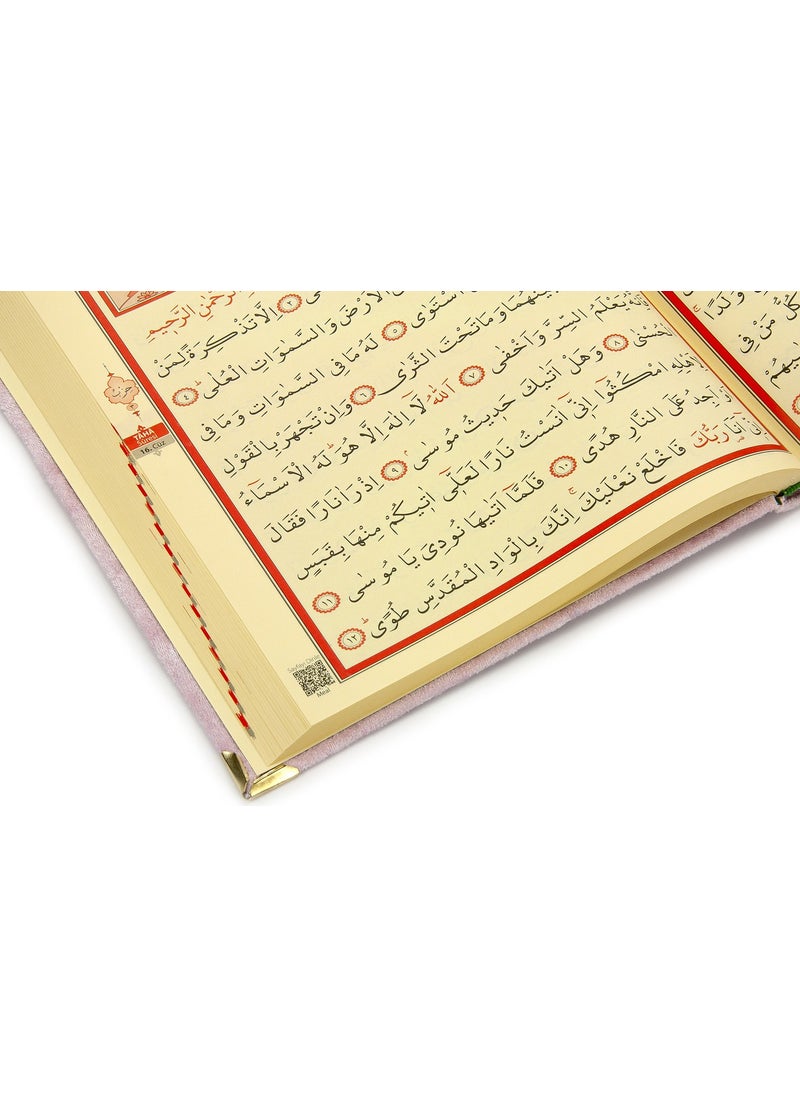 الرَّحْمٰنِ الرَّحِيمِ
٢ اِلَّا تَذْكِرَةً لِمَنْ
الْاَرْضَ وَالسَّمٰوَاتِ الْعُلٰىۜ ٤
اسْتَوٰى ٥ لَهُ مَا فِى السَّمٰوَاتِ وَمَا فِى
بَيْنَهُمَا وَمَا تَحْتَ الثَّرٰى ٦ وَاِنْ تَجْهَرْ بِالْقَوْلِ
فَاِنَّهُ يَعْلَمُ السِّرَّ وَاَخْفٰى ٧ اَللّٰهُ لَٓا اِلٰهَ اِلَّا هُوَۜ لَهُ الْاَسْمَٓاءُ
الْحُسْنٰى ٨ وَهَلْ اَتٰيكَ حَدِيثُ مُوسٰىۢ ٩ اِذْ رَاٰ نَارًا فَقَالَ
لِاَهْلِهِ امْكُثُٓوا اِنِّٓى اٰنَسْتُ نَارًا لَعَلِّٓى اٰتِيكُمْ مِنْهَا بِقَبَسٍ
اَوْ اَجِدُ عَلَى النَّارِ هُدًى ١٠ فَلَمَّٓا اَتٰيهَا نُودِىَ يَا مُوسٰى ١١
اِنِّٓى اَنَا۬ رَبُّكَ فَاخْلَعْ نَعْلَيْكَۚ اِنَّكَ بِالْوَادِ الْمُقَدَّسِ طُوًىۜ ١٢
حزب
TÂHÂ
Sûresi
16. Cüz
Meal
وَلَدًاۚ
كُلُّ مَنْ فِى